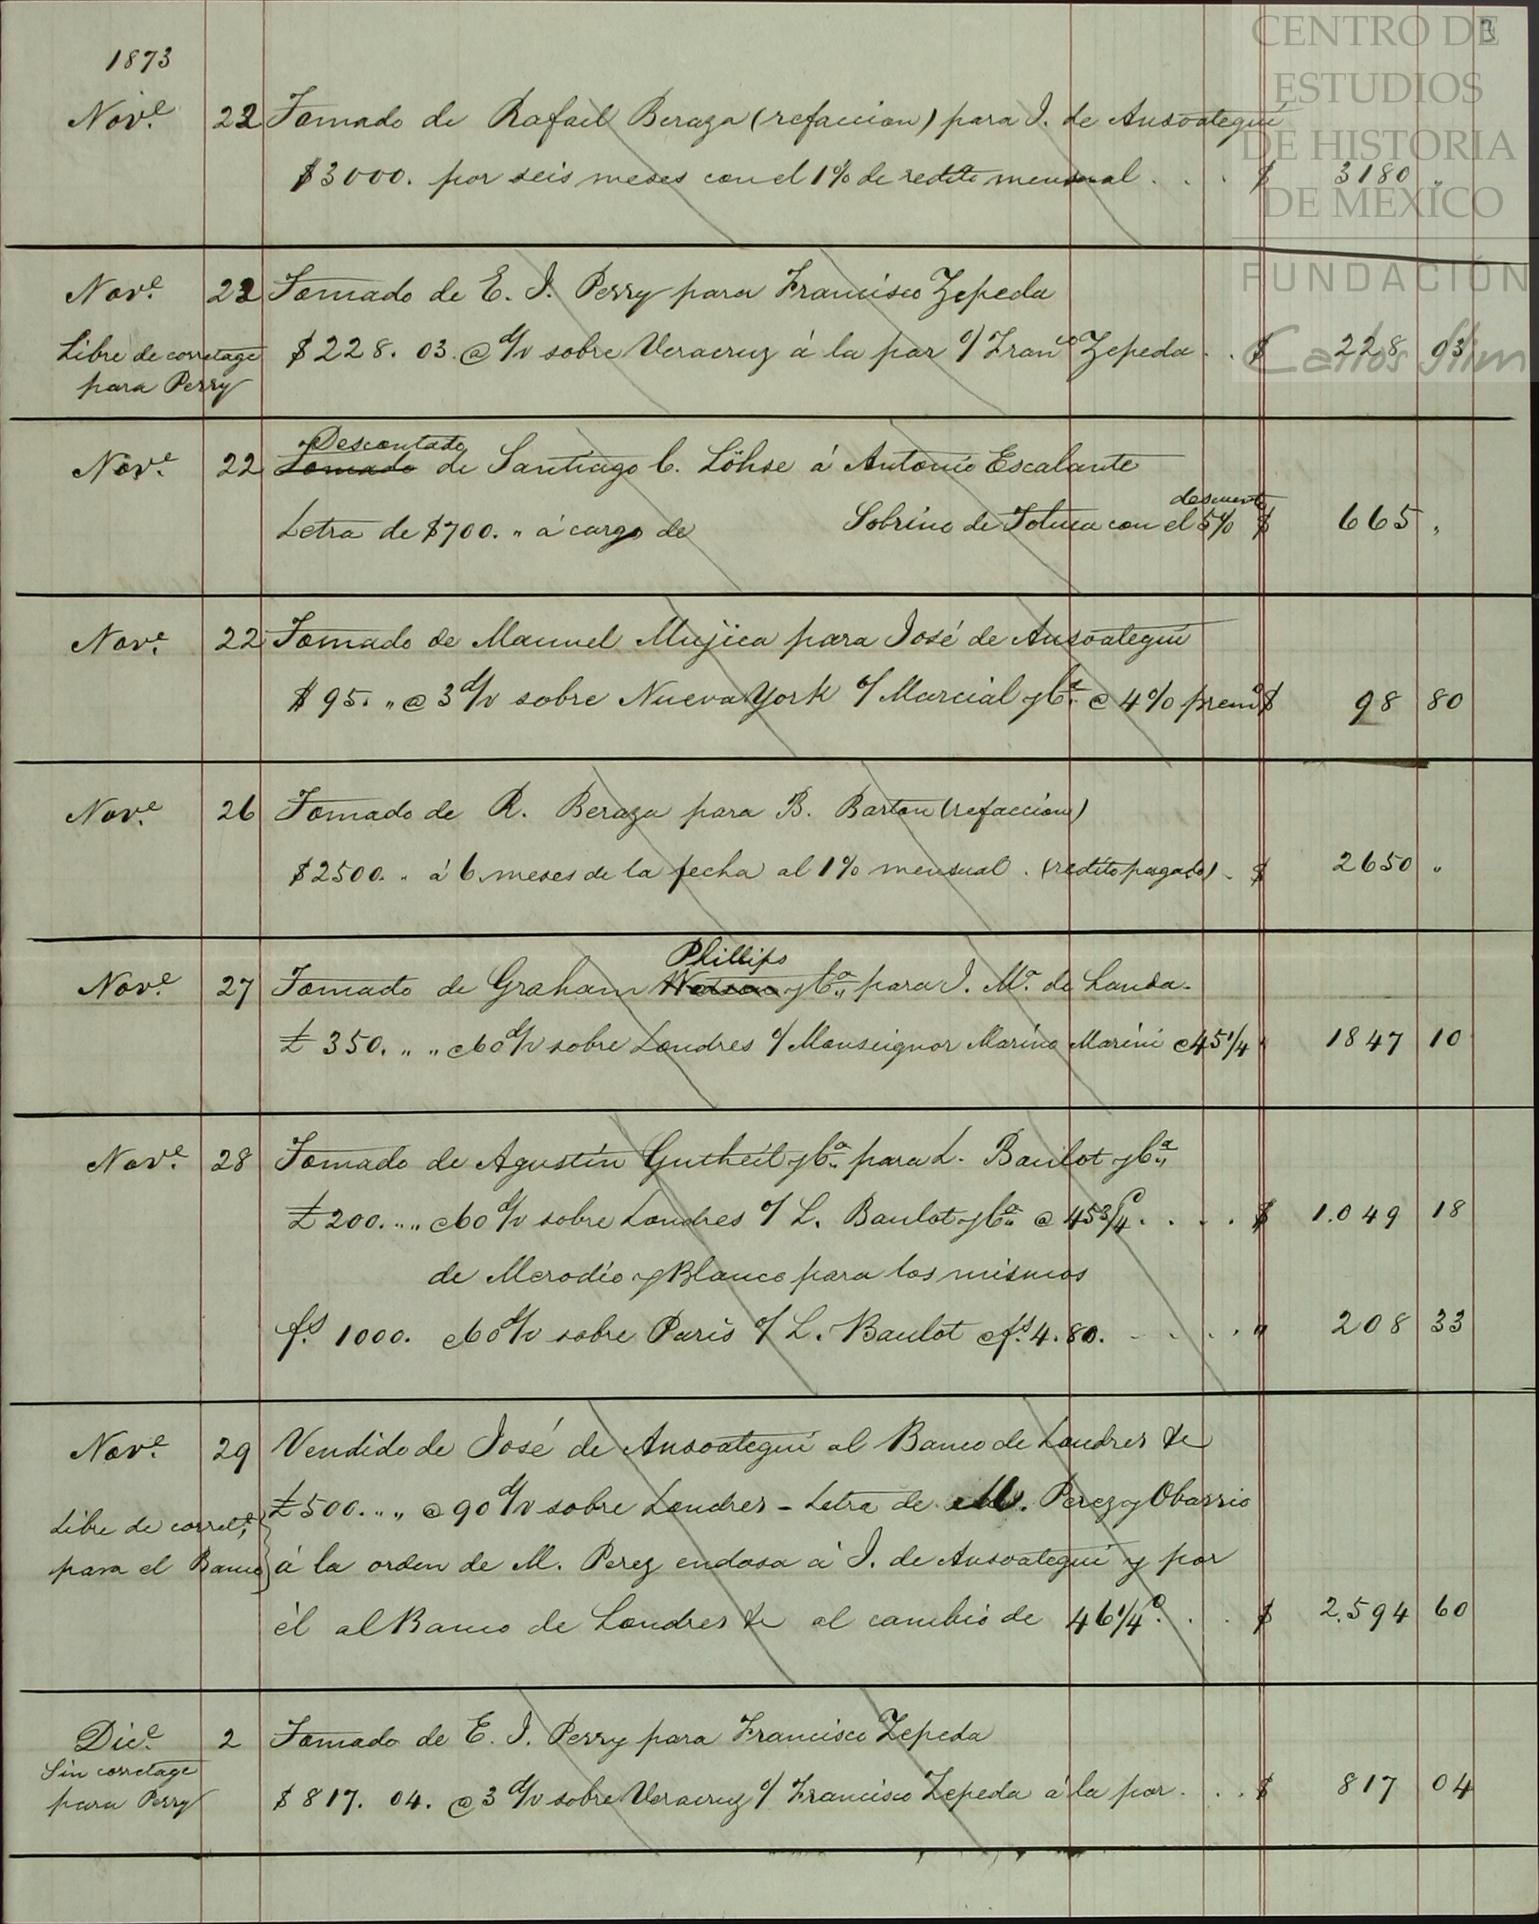 3
CENTRO DE
ESTUDIOS
DE HISTORIA
DE MÉXICO
FUNDACIÓN
Carlos Slim
1873
Nov.e 22 Tomado de Rafael Beraza (refaccion) para J. de Ansoategui
$3000. por seis meses con el 1% de redito mensual . . . $ 3180 "
Nov.e 22 Tomado de E. J. Perry para Francisco Zepeda
Libre de corretage
para Perry
$228. 03. @ d/v sobre Veracruz á la par o/ Fran.co Zepeda . . $ 228 03
Nov.e 22 Descontado
Tomado de Santiago C. Löhse á Antonio Escalante
Letra de $700. " á cargo de Sobrino de Toluca con el 5% descuento $ 665 "
Nov.e 22 Tomado de Manuel Mujica para José de Ansoategui
$ 95. " @ 3 d/v sobre Nueva York o/ Marcial y C.a @ 4% prem.o $ 98 80
Nov.e 26 Tomado de R. Beraza para B. Barton (refaccion)
$2500. " á 6 meses de la fecha al 1% mensual . (redito pagado) . $ 2650 "
Phillips
Nov.e 27 Tomado de Graham Watson y C.a para J. M.a de Landa.
£ 350. " " @60 d/v sobre Londres o/ Monseignor Marino Marini @45 1/4 " 1847 10
Nov.e 28 Tomado de Agustin Gutheil y C.a para L. Baulot y C.a
£ 200. " " @60 d/v sobre Londres o/ L. Baulot y C.a @ 45 3/4 . . . . $ 1.049 18
de Merodio y Blanco para los mismos
f.s 1000. @60 d/v sobre Paris o/ L. Baulot @f.s 4. 80. . . . . " 208 33
Nov.e 29 Vendido de José de Ansoategui al Banco de Londres &c
Libre de corret.e
para el Banco
£500. " " @ 90 d/v sobre Londres - Letra de M. Perez y Obarrio
á la orden de M. Perez endosa á J. de Ansoategui y por
él al Banco de Londres &c al cambio de 46 1/4 . . . $ 2.594 60
Dic.e 2 Tomado de E. J. Perry para Francisco Zepeda
Sin corretage
para Perry
$ 817. 04. @ 3 d/v sobre Veracruz o/ Francisco Zepeda á la par . . . $ 817 04